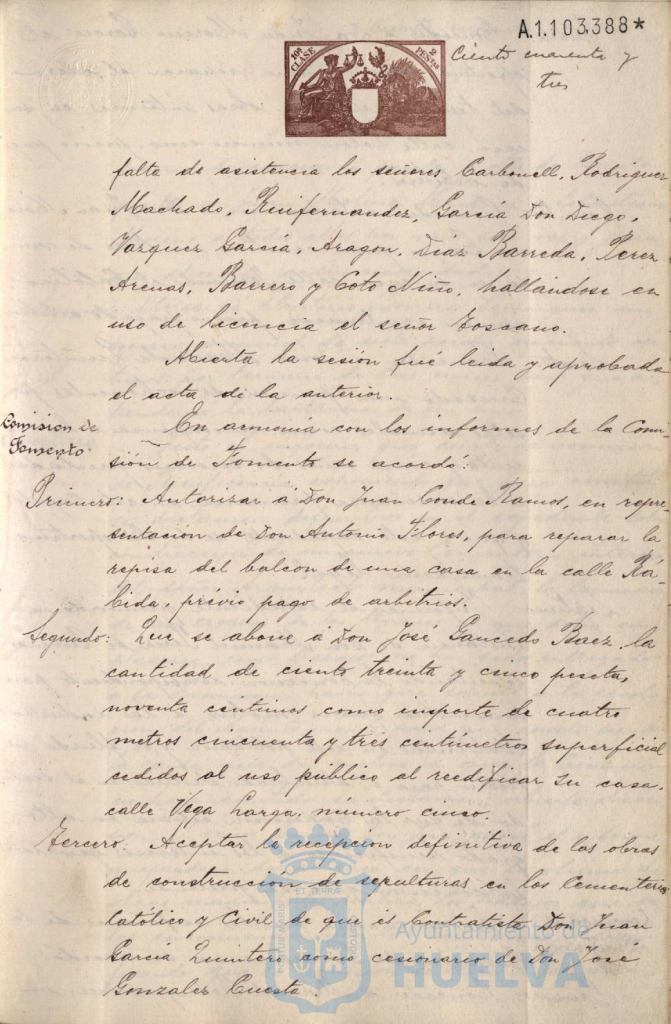 A.1.103.388*
10ª CLASE
2 PESTAS
Ciento cuarenta y
tres
falta de asistencia los señores Carbonell, Rodriguez
Machado, Ruifernandez, García Don Diego,
Vazquez García, Aragon, Diaz Barreda, Perez
Arenas, Barrero y Coto Niño, hallándose en
uso de licencia el señor Toscano.
Abierta la sesión fué leida y aprobada
el acta de la anterior.
Comision de
Fomento.
En armonía con los informes de la Comi-
sión de Fomento se acordó:
Primero: Autorizar á Don Juan Conde Ramos, en repre-
sentación de Don Antonio Flores, para reparar la
repisa del balcon de una casa en la calle Rá-
bida, prévio pago de arbitrios.
Segundo: Que se abone á Don José Gancedo Baez, la
cantidad de ciento treinta y cinco peseta,
noventa centimos como importe de cuatro
metros cincuenta y tres centímetros superficial
cedidos al uso público al reedificar su casa,
calle Vega Larga, número cinco.
Tercero: Aceptar la recepcion definitiva de las obras
de construcción de sepulturas en los Cementerios
Católico y Civil de que es Contratista Don Juan
García Quintero como cesionario de Don José
Gonzalez Cuesta.
Ayuntamiento de
HUELVA